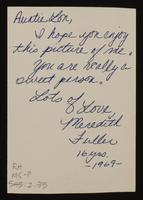 Auntie Lon,
I hope you enjoy
this picture of me.
You are really a
sweet person.
Lots of
Love,
Meredith
Fuller
16 yrs.
-1969-
RH
MS-P
545:2.35